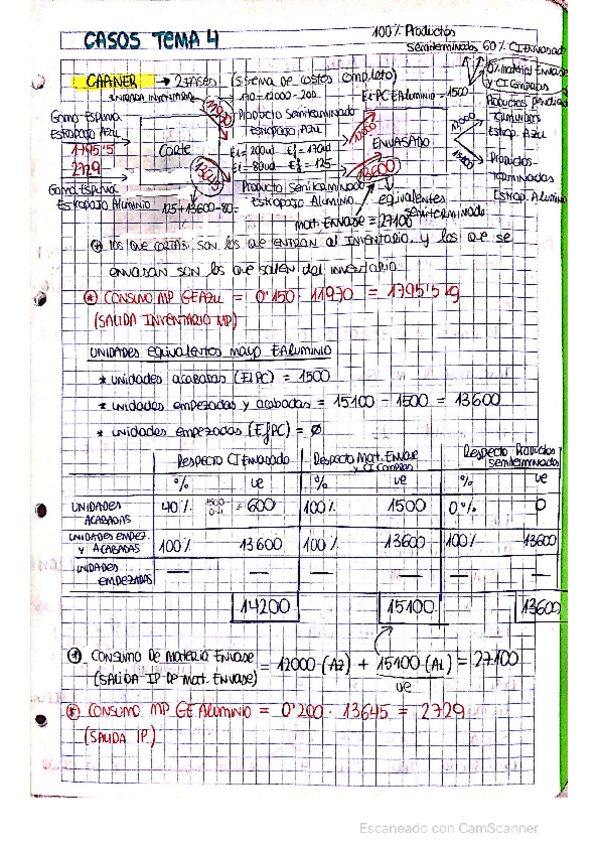 CASOS TEMA 4
100% Productos
Semiterminados 60% CI Envasado
0% material Envase
y CI Compras
CAANER → 2 FASES (sistema de costes completo)
ENTRADA INVENTARIO
Ei PC EAluminio = 1500
Goma Espuma
Estropajo Azul
Producto Semiterminado
Estropajo Azul
11970
12000
12000
1795'5
2729
Corte
Ei = 200ud Ef = 170ud
Ei = 80ud Ef = 125
ENVASADO
Terminados
Estrop. Azul
15100
Productos
Terminados
Estrop. Aluminio
13645
13600
Goma Espuma
Estropajo Aluminio
125+13600-80=
Producto Semiterminado
Estropajo Aluminio
equivalentes
semiterminado
mat. Envase = 27100
* los que cortas son los que entran al inventario, y los que se
envasan son los que salen del inventario
* CONSUMO MP GEAZUL = 0'150 · 11970 = 1795'5 kg
(SALIDA INVENTARIO MP)
UNIDADES equivalentes mayo EALUMINIO
* unidades acabadas (EiPC) = 1500
* unidades empezadas y acabadas = 15100 - 1500 = 13600
* unidades empezadas (EfPC) = Ø
Respecto CI Envasado Respecto Mat. Envase y CI Compras Respecto Productos semiterminados
% ue % ue % ue
UNIDADES ACABADAS 40% 1500·0'4 = 600 100% 1500 0% 0
UNIDADES EMPEZ. Y ACABADAS 100% 13600 100% 13600 100% 13600
UNIDADES EMPEZADAS — — — — — —
14200 15100 13600
① CONSUMO DE MATERIA ENVASE = 12000 (AZ) + 15100 (AL) = 27100
(SALIDA IP DE Mat. ENVASE)
ue
* CONSUMO MP GE ALUMINIO = 0'200 · 13645 = 2729
(SALIDA IP)
Escaneado con CamScanner